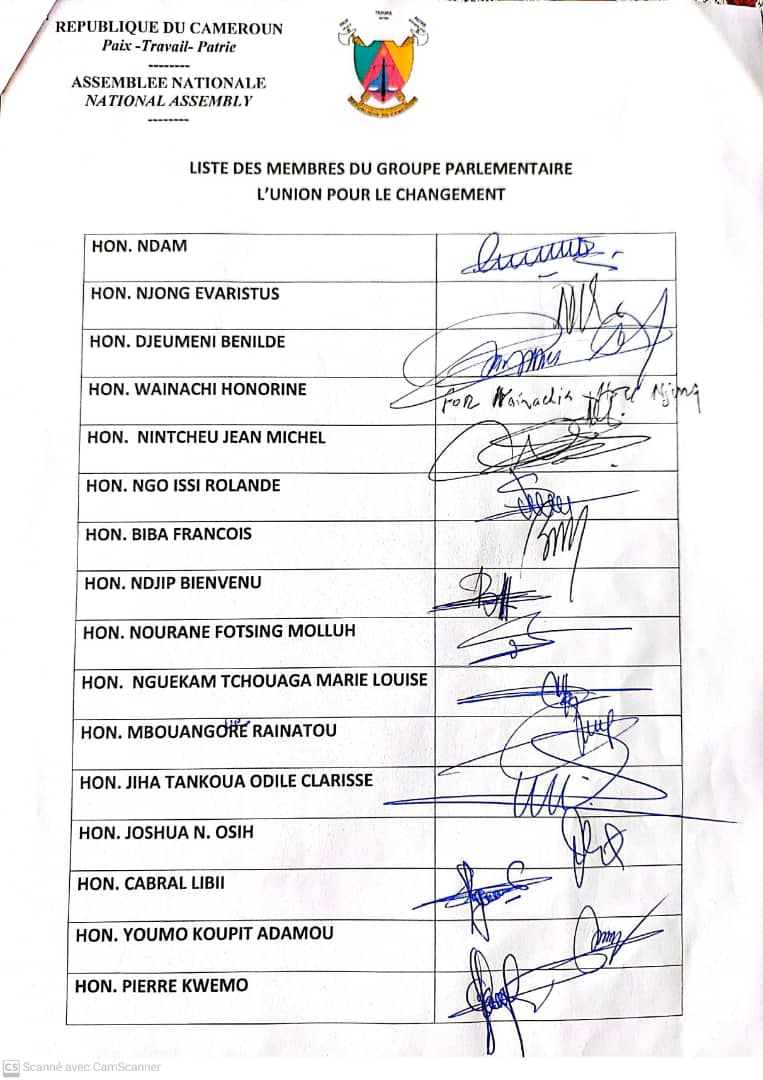 REPUBLIQUE DU CAMEROUN
Paix -Travail- Patrie
--------
ASSEMBLEE NATIONALE
NATIONAL ASSEMBLY
--------
LISTE DES MEMBRES DU GROUPE PARLEMENTAIRE
L'UNION POUR LE CHANGEMENT
HON. NDAM
HON. NJONG EVARISTUS
HON. DJEUMENI BENILDE
HON. WAINACHI HONORINE
For Wainachi Hon Njong
HON. NINTCHEU JEAN MICHEL
HON. NGO ISSI ROLANDE
HON. BIBA FRANCOIS
HON. NDJIP BIENVENU
HON. NOURANE FOTSING MOLLUH
HON. NGUEKAM TCHOUAGA MARIE LOUISE
HON. MBOUANGORE RAINATOU
HON. JIHA TANKOUA ODILE CLARISSE
HON. JOSHUA N. OSIH
HON. CABRAL LIBII
HON. YOUMO KOUPIT ADAMOU
HON. PIERRE KWEMO
CS Scanné avec CamScanner